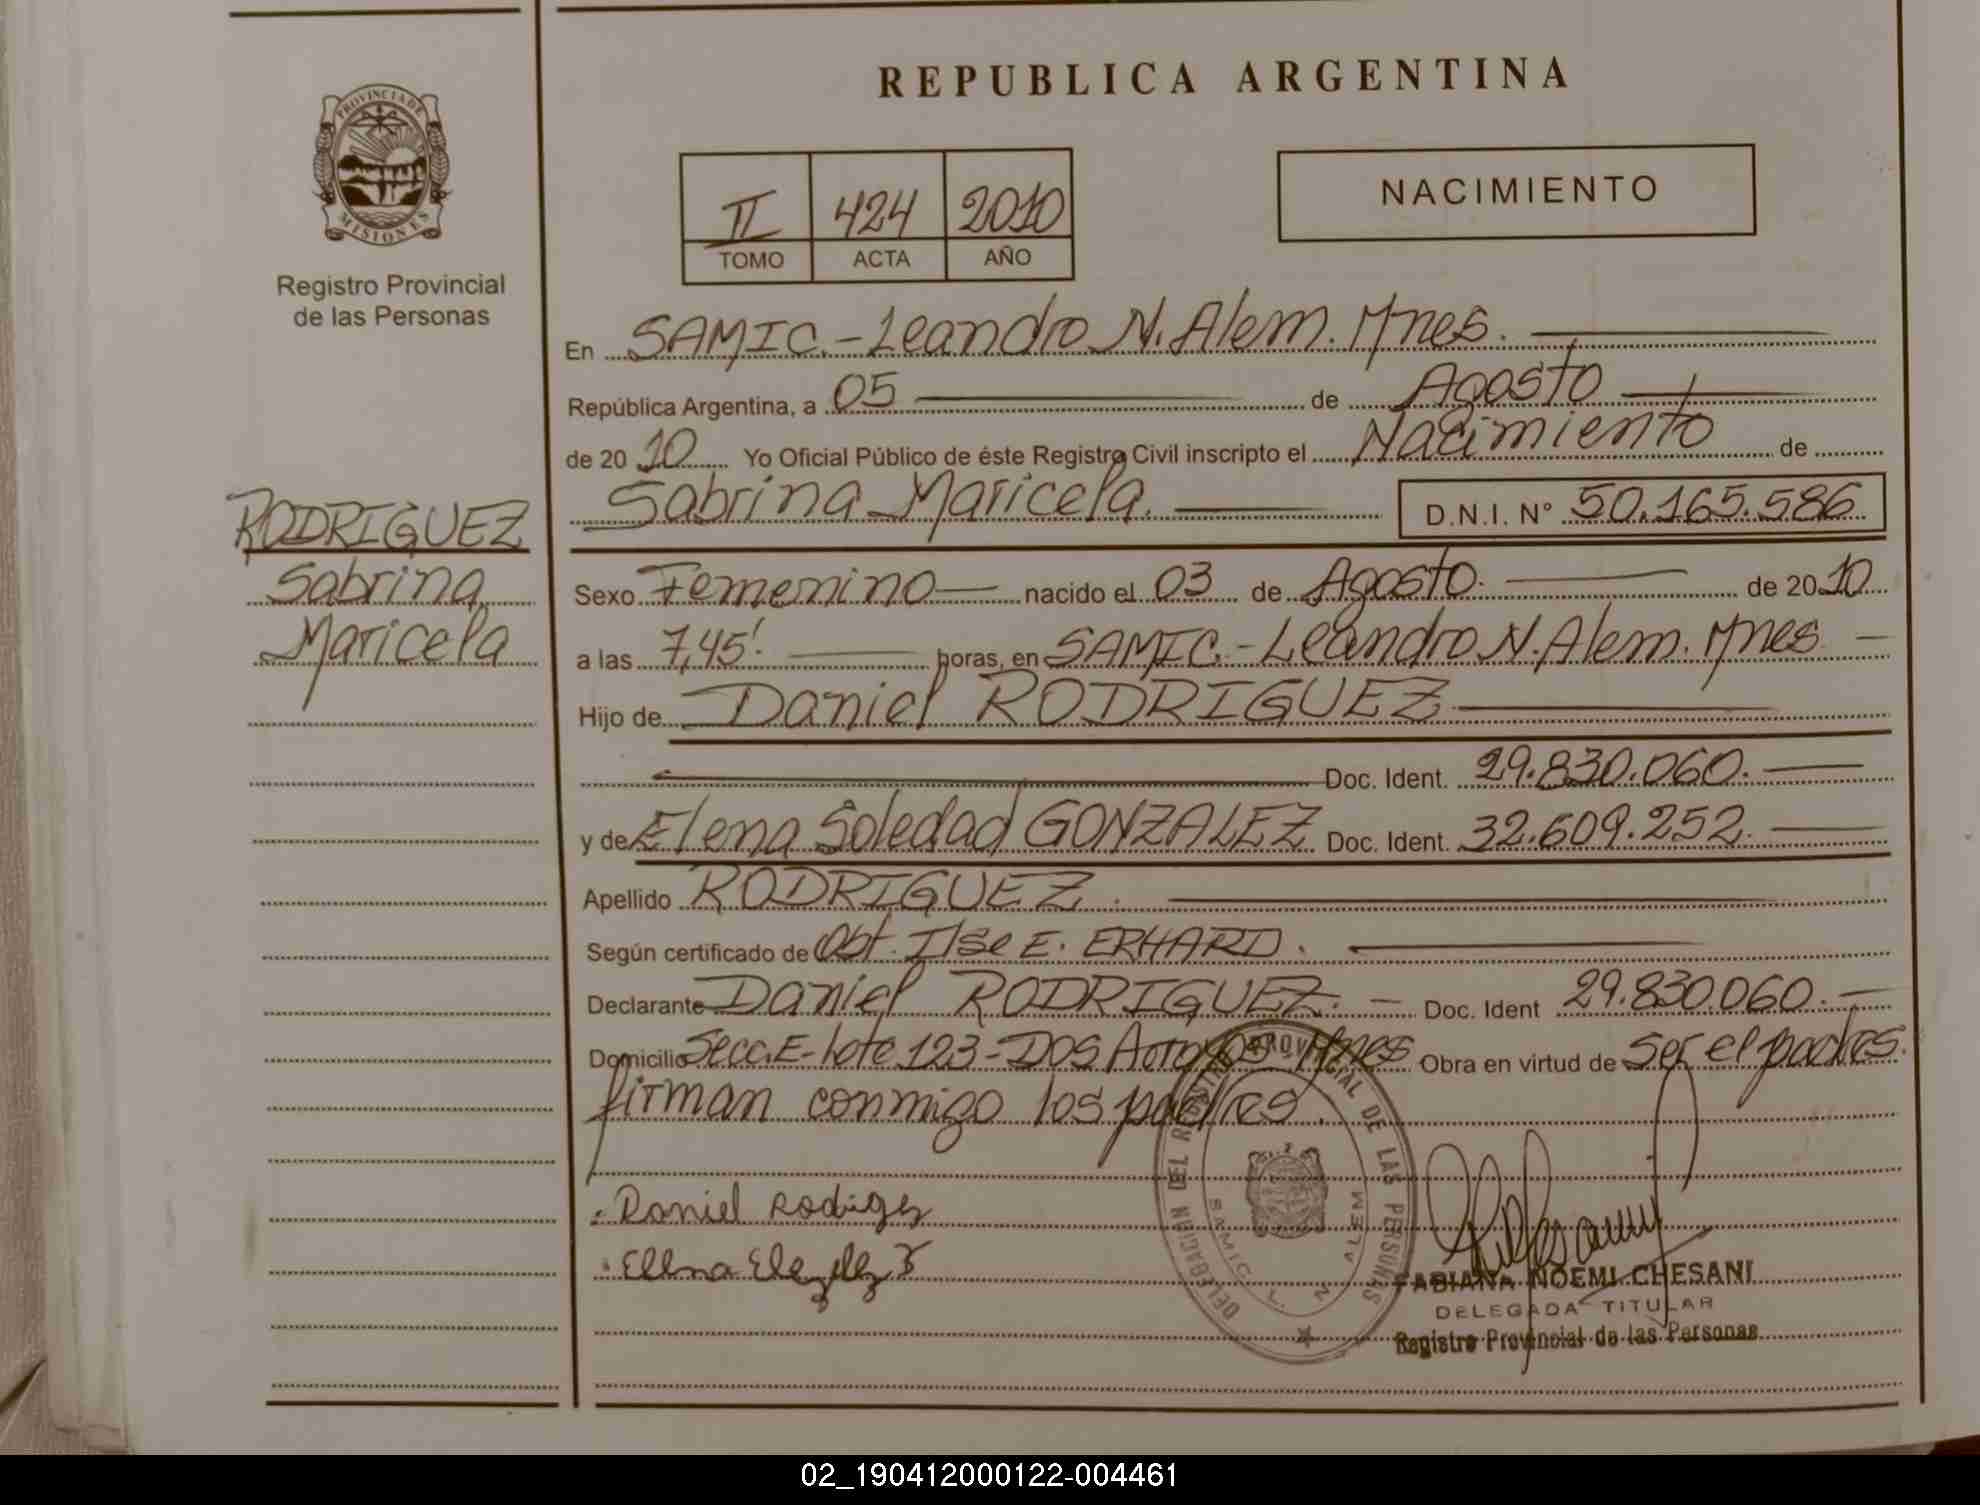 REPUBLICA ARGENTINA
PROVINCIA DE
MISIONES
Registro Provincial
de las Personas
II 424 2010
TOMO ACTA AÑO
NACIMIENTO
En SAMIC.-Leandro N. Alem. Mnes.
República Argentina, a 05 de Agosto
de 20 10 Yo Oficial Público de éste Registro Civil inscripto el Nacimiento de
Sabrina Maricela. D.N.I. N° 50.165.586
RODRIGUEZ
Sabrina
Maricela
Sexo Femenino nacido el 03 de Agosto. de 20 10
a las 7,45'. horas, en SAMIC.-Leandro N. Alem. Mnes
Hijo de Daniel RODRIGUEZ
Doc. Ident. 29.830.060.
y de Elena Soledad GONZALEZ Doc. Ident. 32.609.252.
Apellido RODRIGUEZ.
Según certificado de Obt. Ilse E. ERHARD.
Declarante Daniel RODRIGUEZ. Doc. Ident 29.830.060.
Domicilio Secc. E-Lote 123-DOS Arroyos Mnes Obra en virtud de Ser el padres.
firman conmigo los padres.
Daniel
Elena
DELEGACIÓN DEL REGISTRO PROVINCIAL DE LAS PERSONAS
SAMIC L. N. ALEM
FABIANA NOEMI CHESANI
DELEGADA TITULAR
Registro Provincial de las Personas
02_190412000122-004461